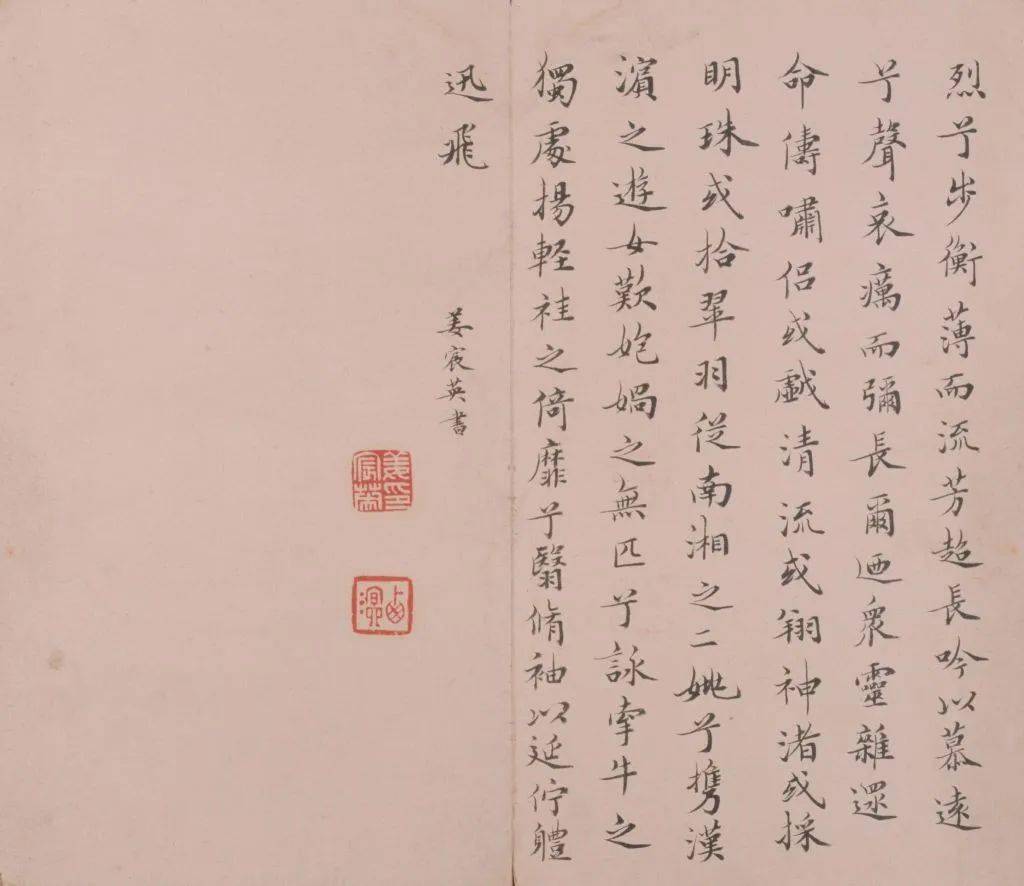 烈兮步衡薄而流芳超長吟以慕遠
兮聲哀癘而彌長爾迺衆靈雜遝
命儔嘯侣或戲清流或翔神渚或採
明珠或拾翠羽從南湘之二姚兮攜漢
濱之遊女歎㚿媧之無匹兮詠牽牛之
獨處揚軽袿之倚靡兮翳脩袖以延佇體
迅飛
姜宸英書
姜宸英印
西溟